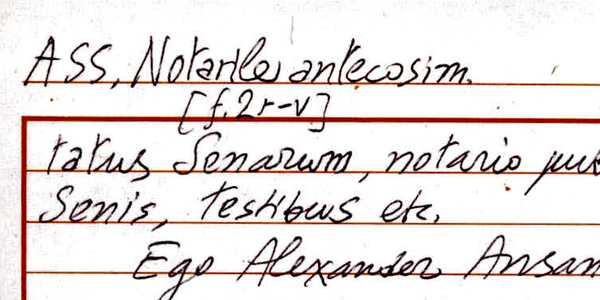 ASS, Notarile antecosim.
[f. 2r-v]
tatus Senarum, notario pub
Senis, testibus etc.
Ego Alexander Ansan